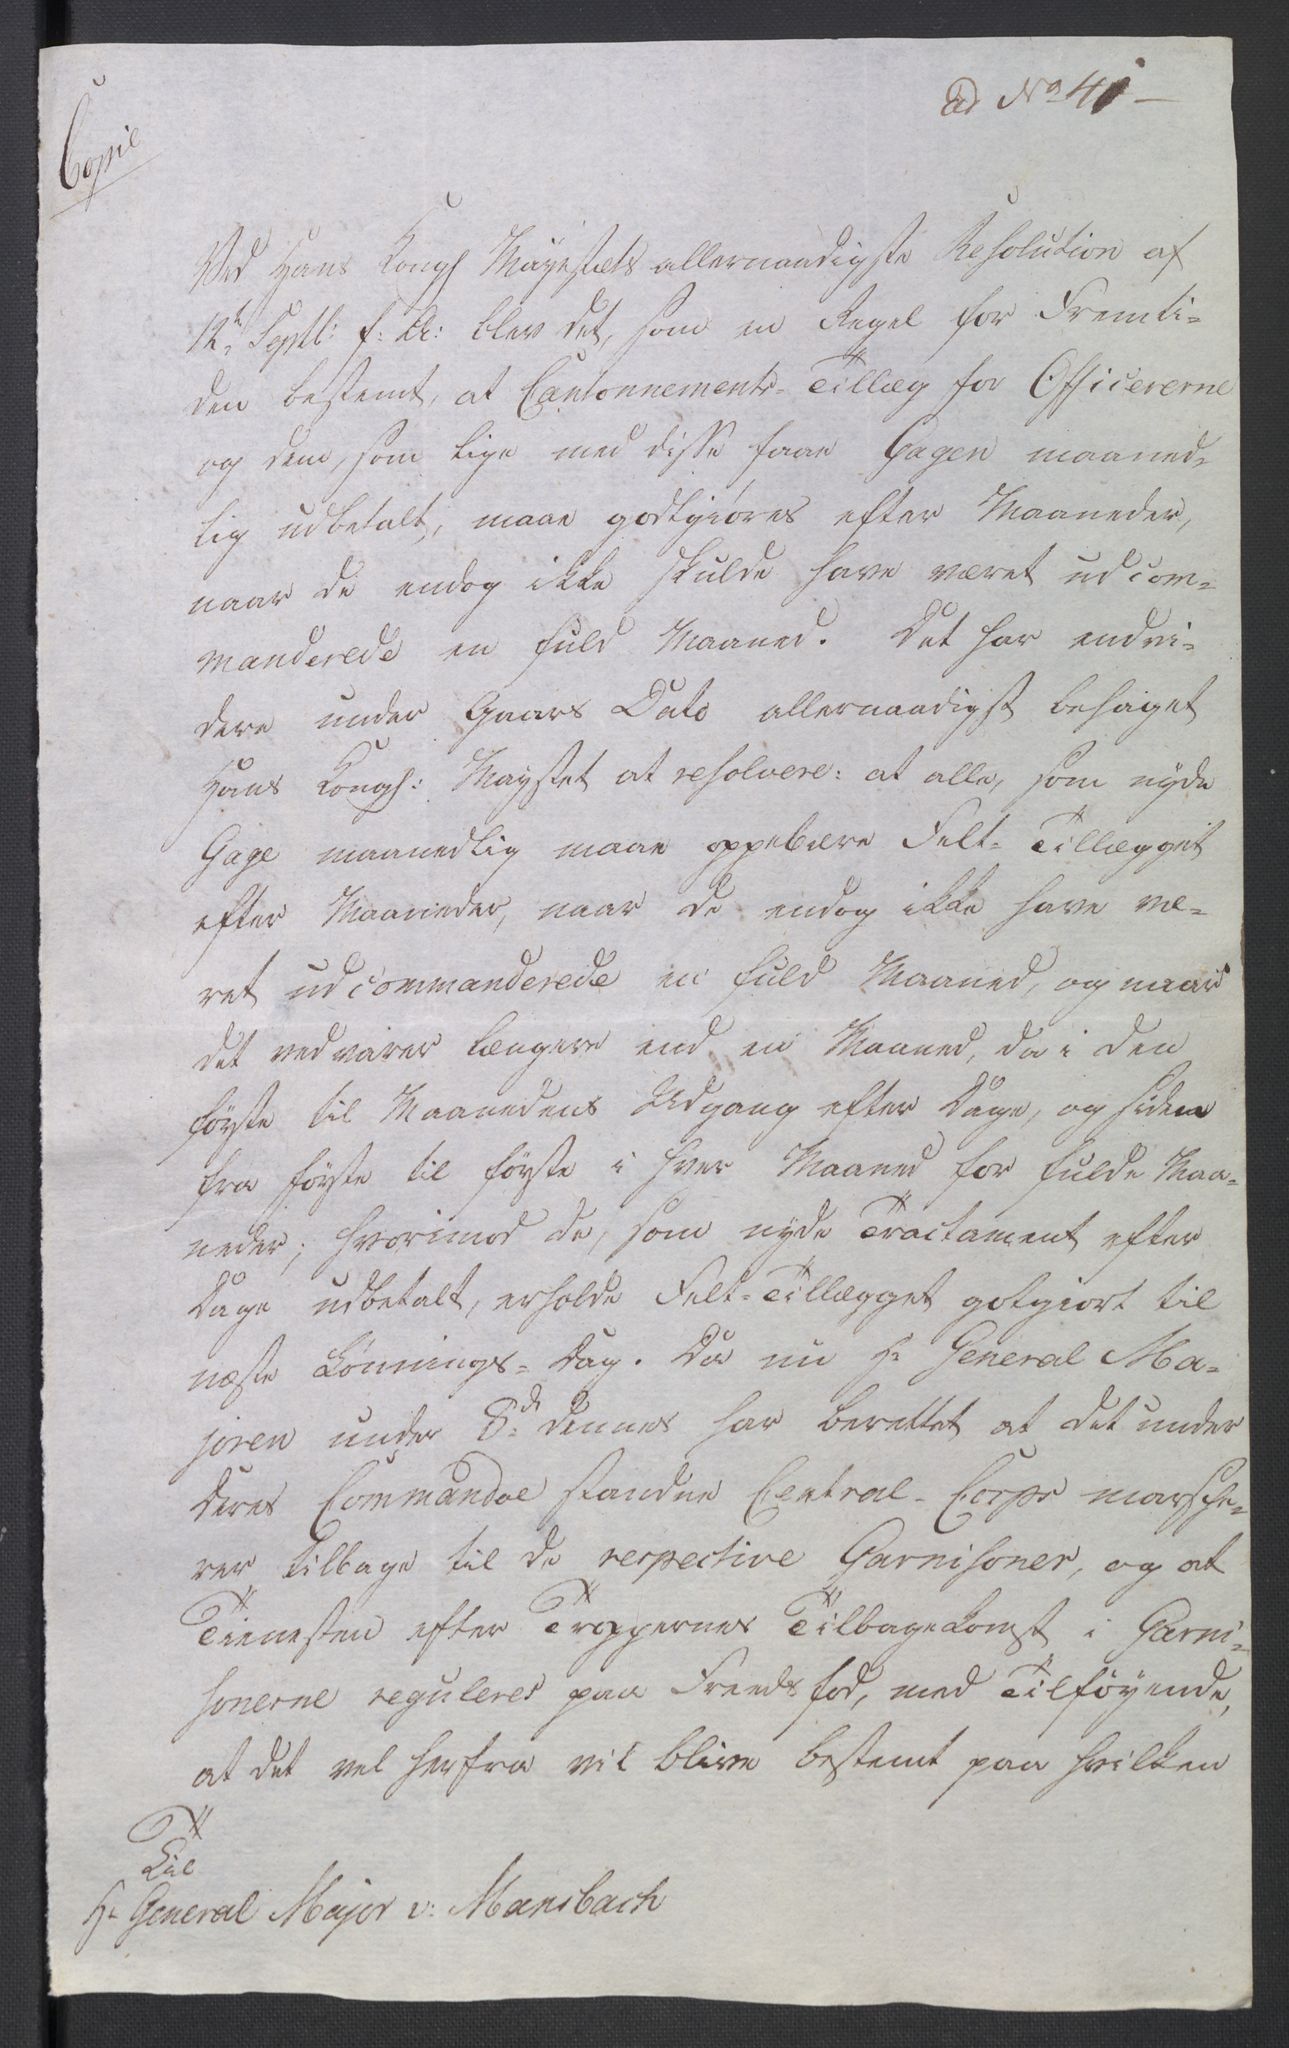 ad No 41 –
Copie
Ved Hans Kongl Mayestæts allernaadigste Resolution af
12te Septb: f: A: blev det, som en Regel for Fremti-
den bestemt, at Cantonnements-Tillæg for Officererne
og dem, som lige med disse faae Gagen maaned-
lig udbetalt, maae godtgiøres efter Maaneder,
naar de endog ikke skulde have været udcom-
manderede en fuld Maaned. Det har endvi-
dere under Gaars Dato allernaadigst behaget
Hans Kongl: Maystet at resolvere: at alle, som nyde
Gage maanedlig maae oppebære Felt-Tillægget
efter Maaneder, naar de endog ikke have væ-
ret udcommanderede en fuld Maaned, og naar
det vedvarer længere end en Maaned, da i den
første til Maanedens Udgang efter Dage, og siden
fra første til første i hver Maaned for fulde Maa-
neder; hvorimod de, som nyde Tractament efter
Dage udbetalt, erholde Felt-Tillægget gotgiort til
næste Lønnings-Dag. Da nu Hr General Ma-
joren under 8de dennes har berettet at det under
Deres Commandoe standne Central-Corps marsche-
rer tilbage til de respective Garnisoner, og at
Tienesten efter Troppernes Tilbagekomst i Garni-
sonerne reguleres paa Freds fod, med Tilføyende,
at det vel herfra vil blive bestemt paa hvilken
Til
Hr General Major v: Mansbach